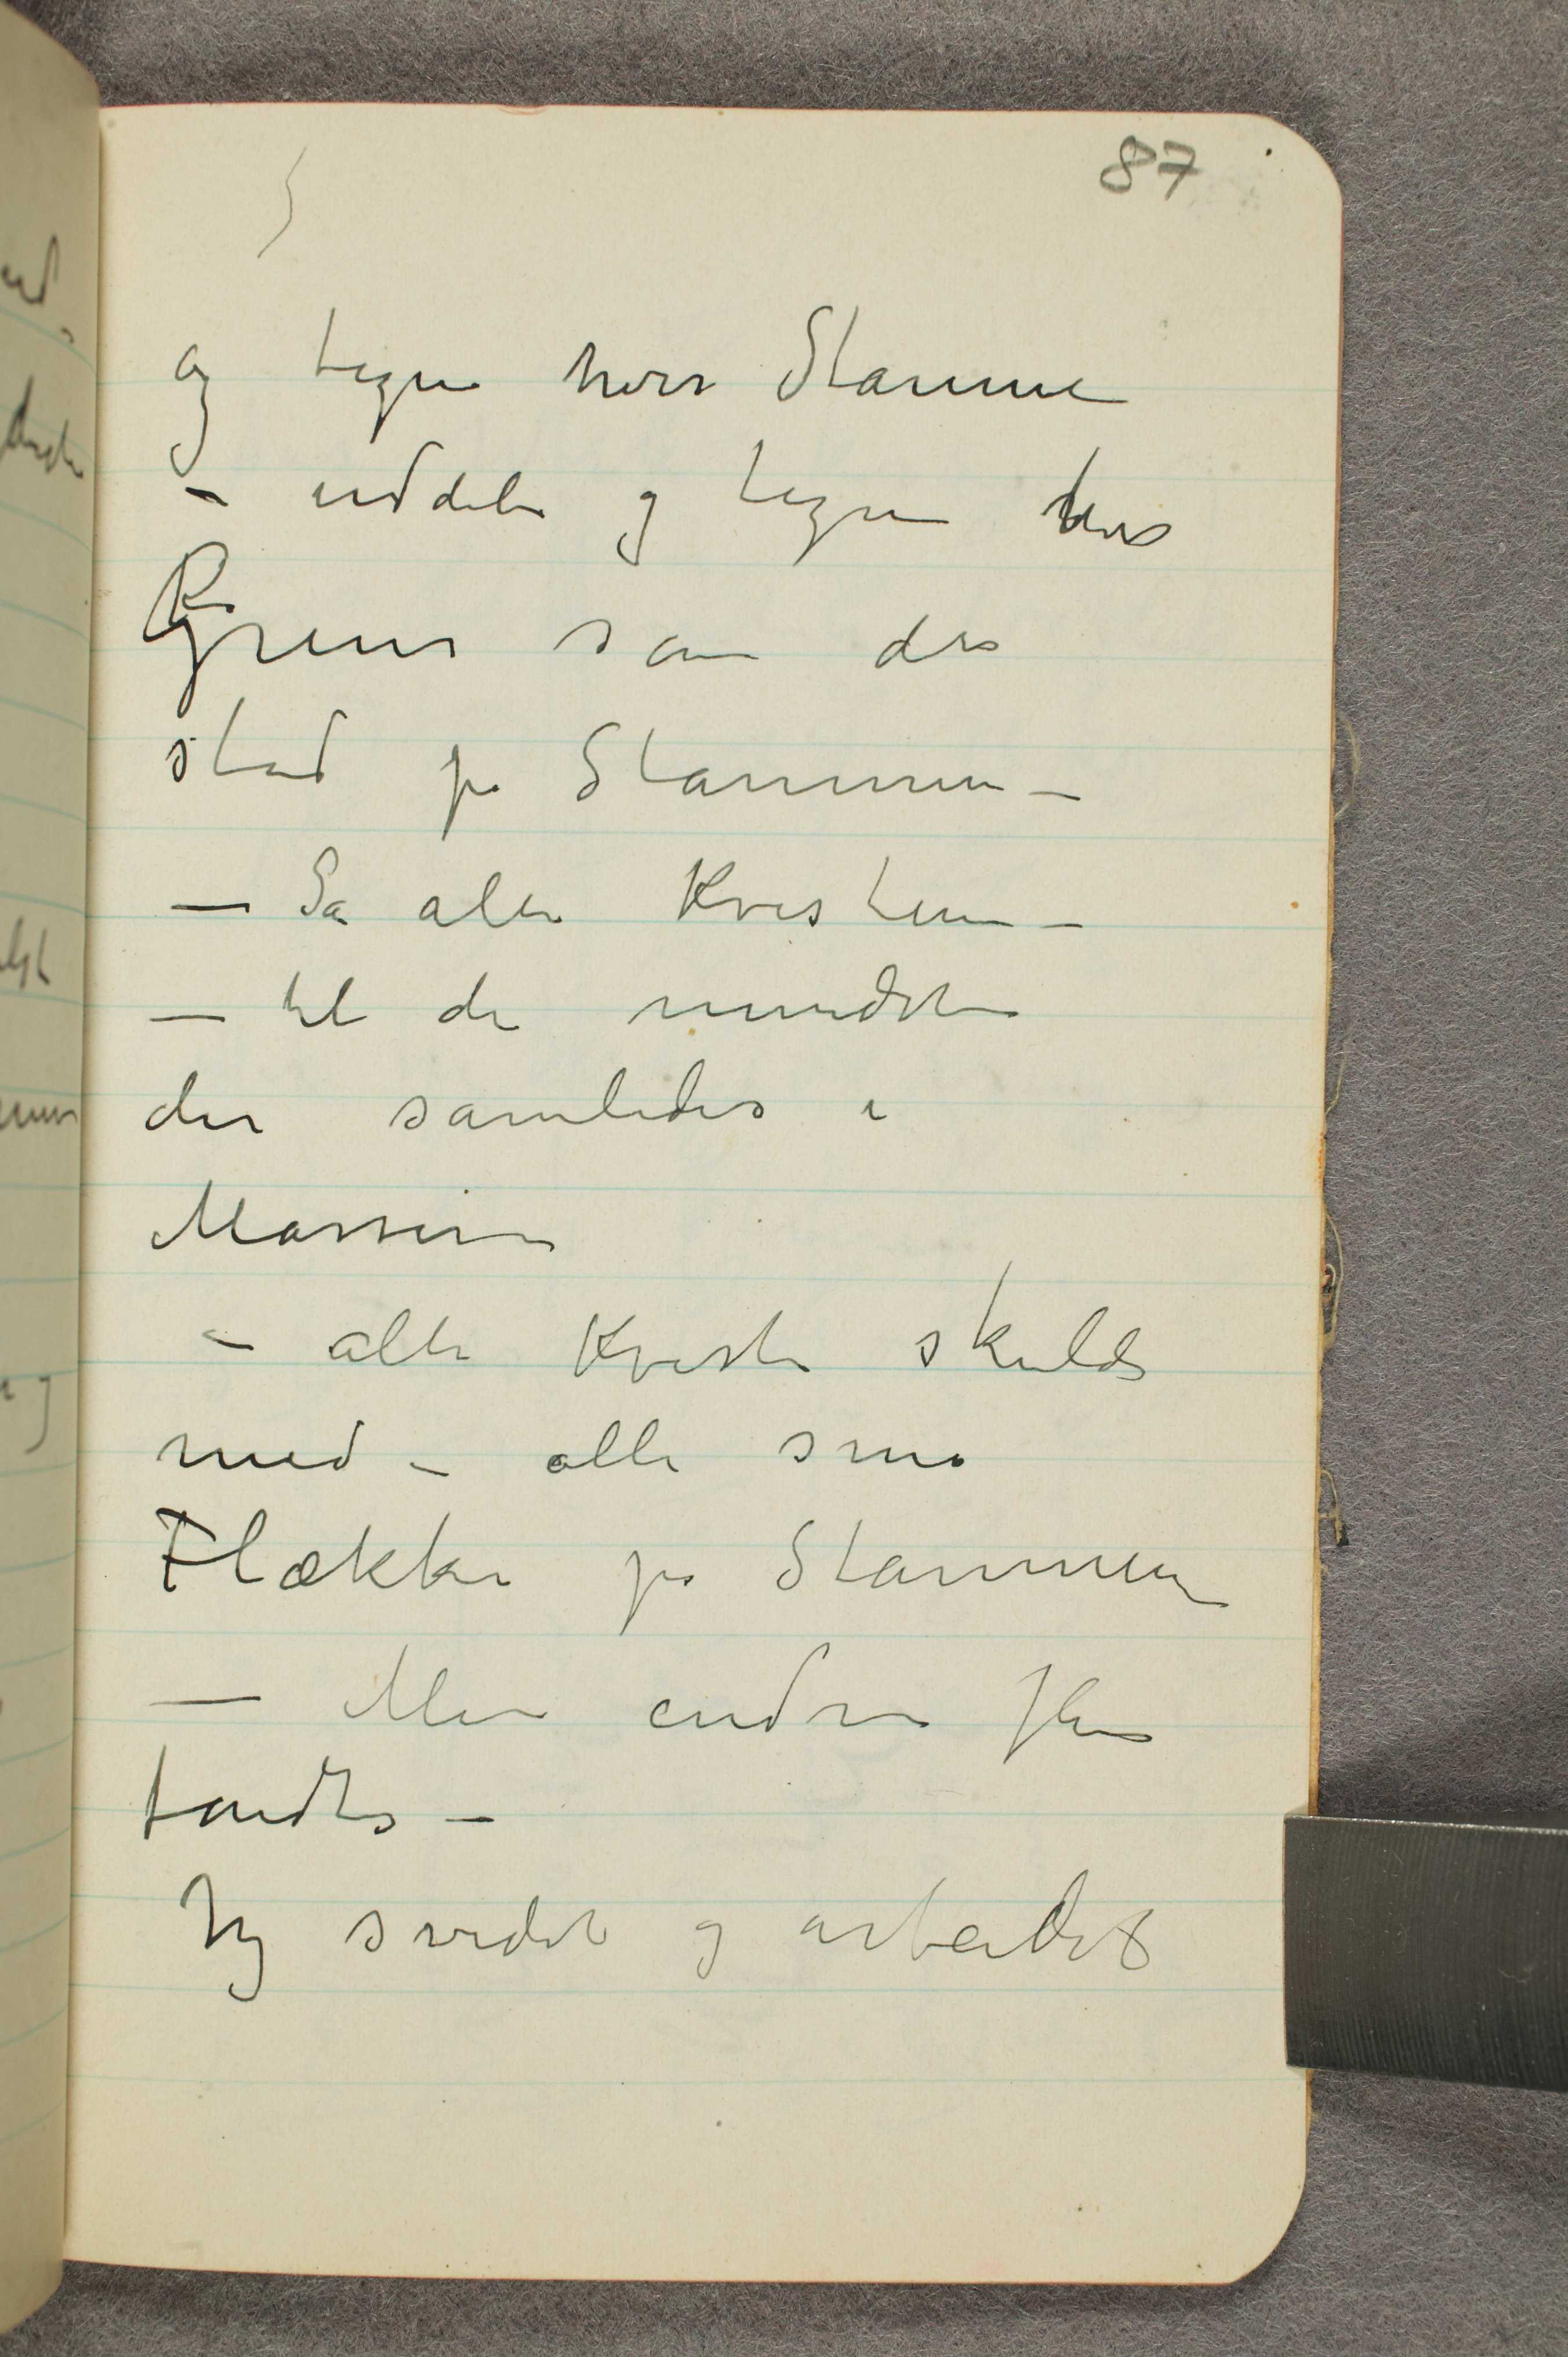 87
og tegne hver Stamme
– inddele og tegne hver
Green som der
stod på Stammen –
– Så alle Kvistene –
– til de mindste
der samledes i
Masserne
– alle Kviste skulde
med – alle små
Flækker på Stammen
– Men endnu flere
fandtes –
Jeg svedet og arbeidet